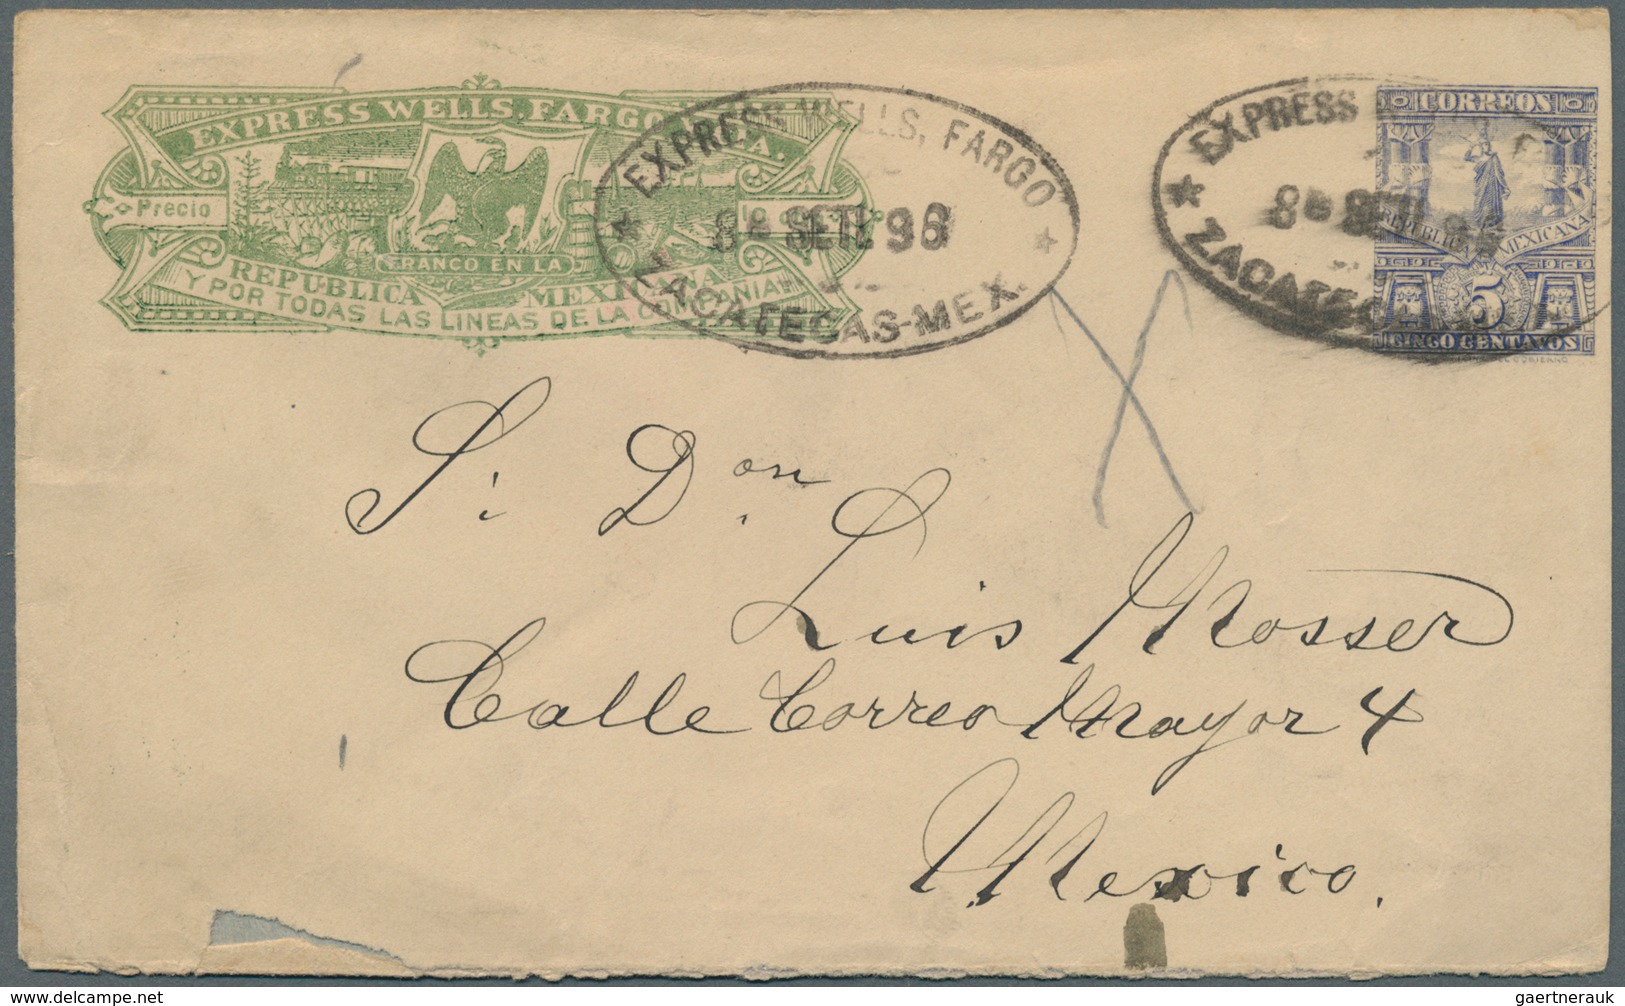 EXPRESS WELLS, FARGO
Precio
FRANCO EN LA
REPUBLICA MEXICANA
Y POR TODAS LAS LINEAS DE LA COMPAÑIA
EXPRESS WELLS, FARGO
SETE 96
ZACATECAS-MEX.
EXPRESS
ZACATECAS
CORREOS
REPUBLICA MEXICANA
5
CINCO CENTAVOS
Sr. Don
Luis Mosser
Calle Correo Mayor 4
Mexico.
gaertnerauk